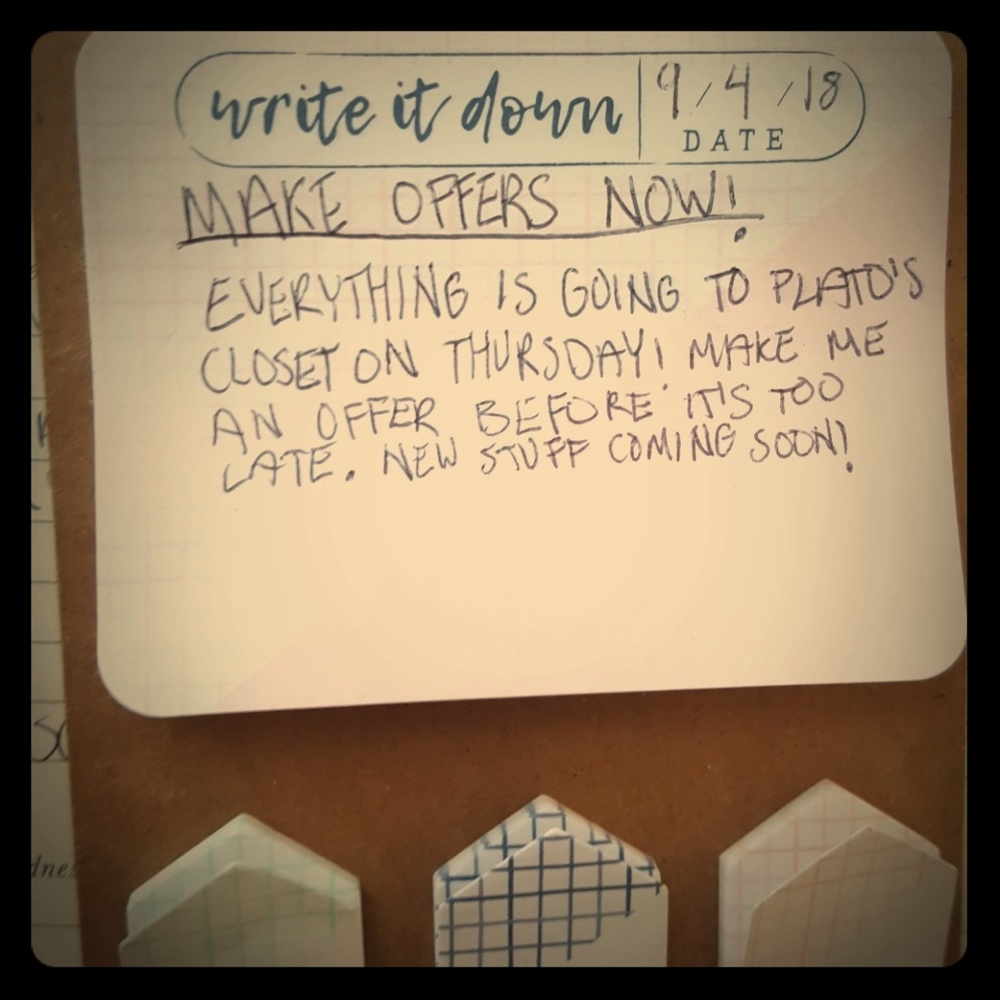 write it down 9/4/18
DATE
MAKE OFFERS NOW!
EVERYTHING IS GOING TO PLATO'S
CLOSET ON THURSDAY! MAKE ME
AN OFFER BEFORE IT'S TOO
LATE. NEW STUFF COMING SOON!